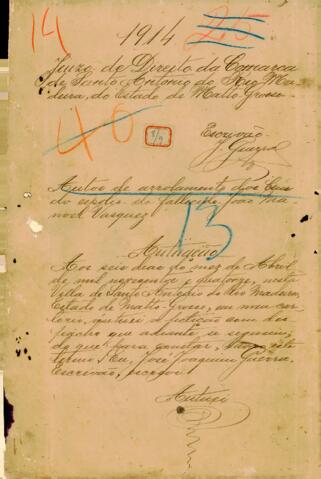 14 1914 25
Juizo de Direito da Comarca
de Santo Antonio do Rio Ma-
deira, do Estado de Matto Grosso
40
Escrivão
J. Guerra
Autos de arrolamento dos bens
do espolio do fallecido João Ma-
noel Vasquez
13
Autuação
Aos seis dias do mez de Abril
de mil novecentos e quatorze, nesta
Villa de Santo Antonio do Rio Madeira,
Estado de Matto Grosso, em meu car-
torio, autuei a petição com des-
pacho que adiante se segue;
do que para constar, faço este
termo. Eu, José Joaquim Guerra
Escrivão, escrevi
Autuei